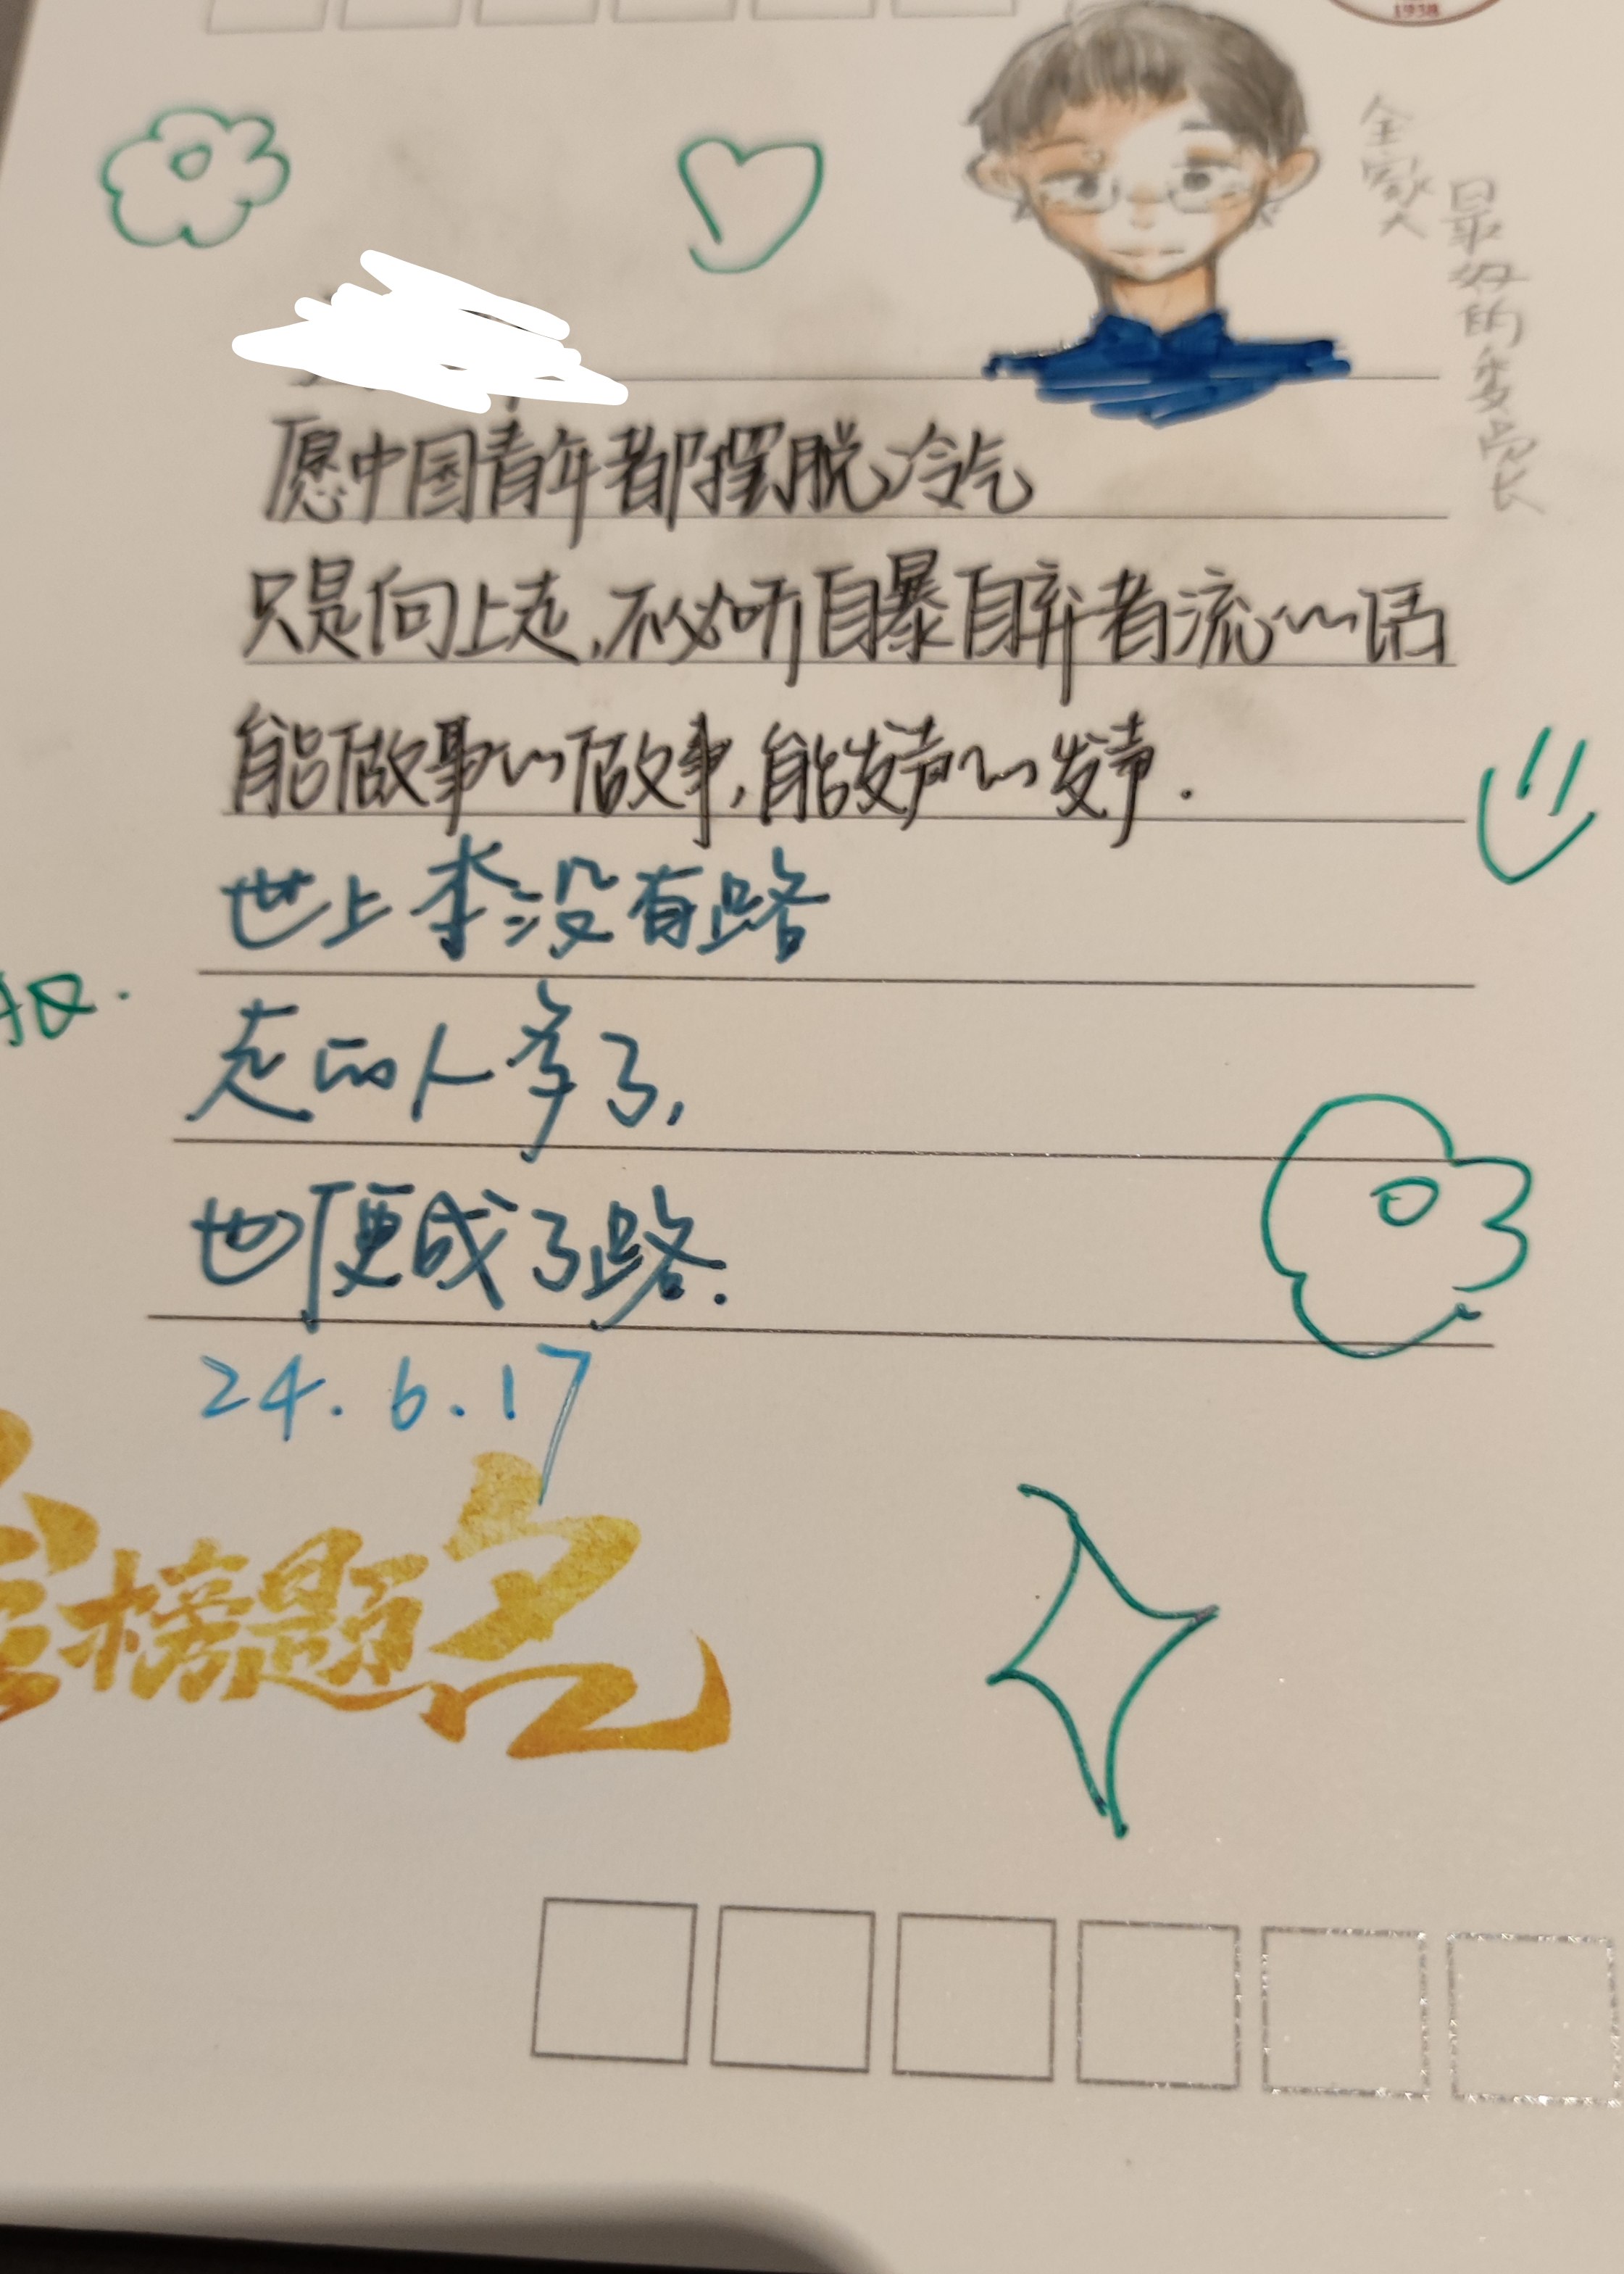 1938
最好的委员长
愿中国青年都摆脱冷气
只是向上走,不必听自暴自弃者流的话
能做事的做事,能发声的发声.
世上本没有路
走的人多了,
也便成了路.
24.6.17
金榜题名